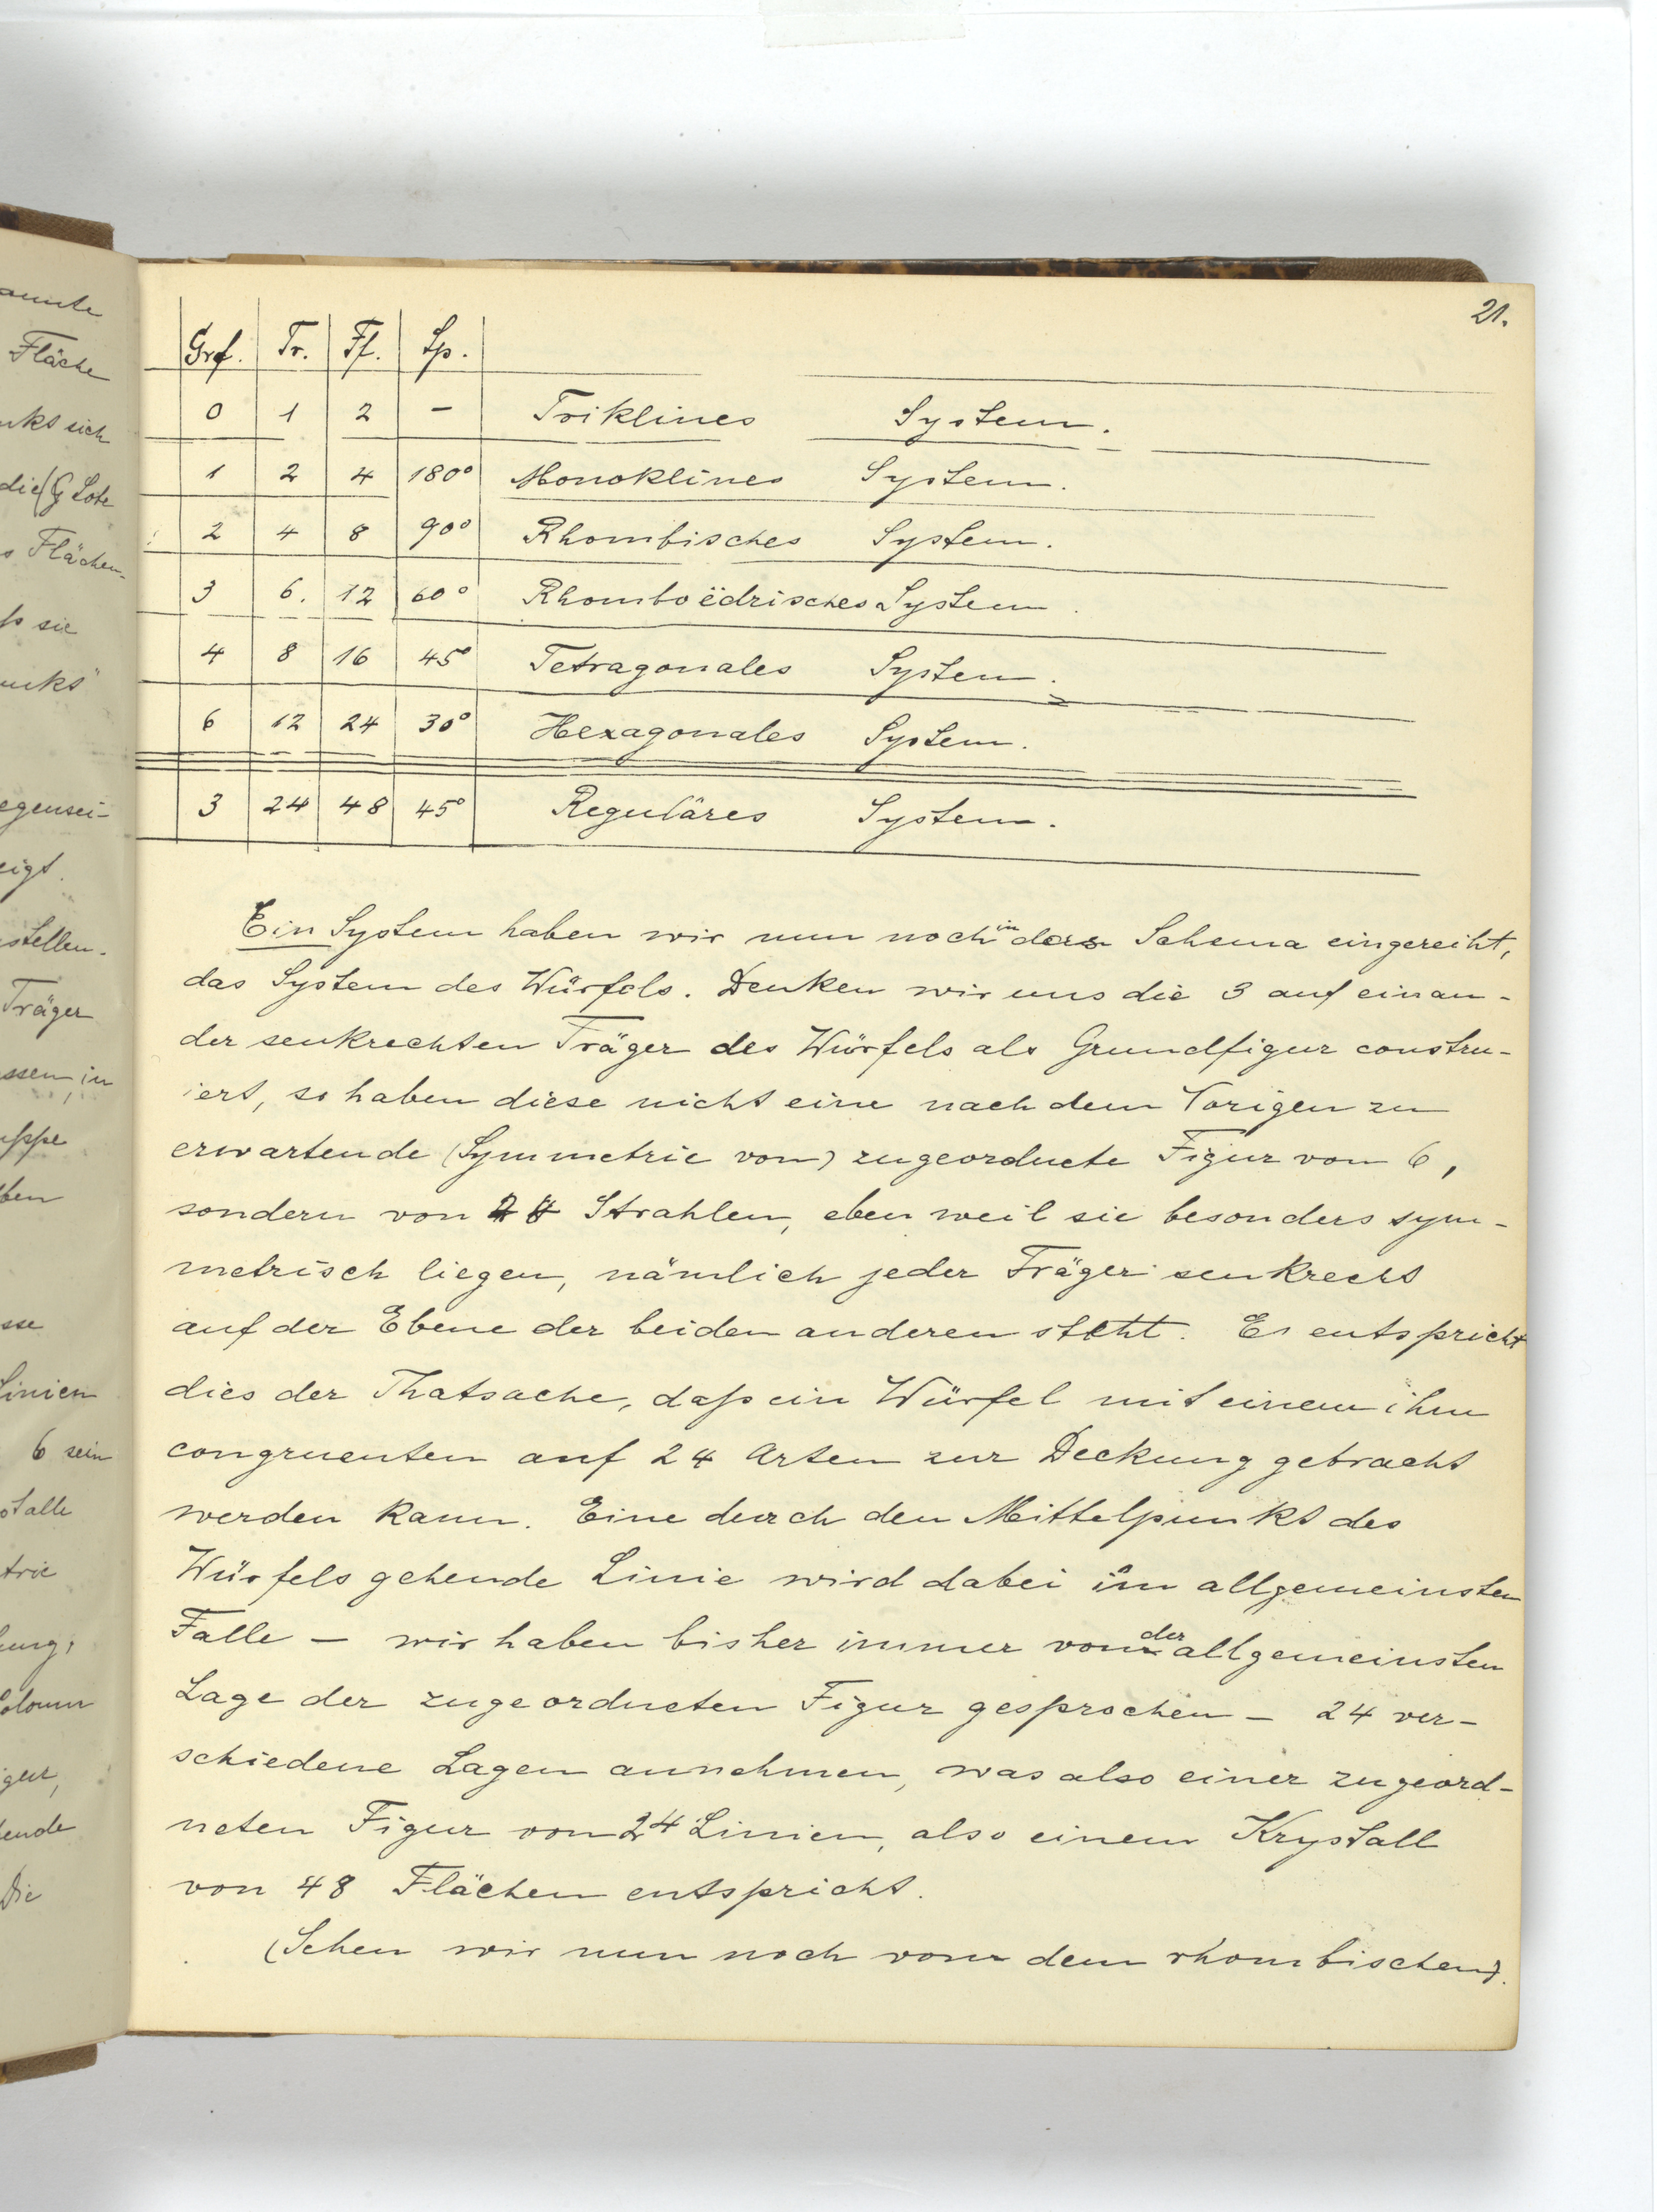 21.
Grf. Tr. Ff. Sp.
0 1 2 – Triklines System.
1 2 4 180° Monoklines System.
2 4 8 90° Rhombisches System.
3 6. 12 60° Rhomboëdrisches System.
4 8 16 45° Tetragonales System.
6 12 24 30° Hexagonales System.
3 24 48 45° Reguläres System.
Ein System haben wir nun noch in das Schema eingereiht,
das System des Würfels. Denken wir uns die 3 auf einan-
der senkrechten Träger des Würfels als Grundfigur constru-
iert, so haben diese nicht eine nach dem Vorigen zu
erwartende (Symmetrie von) zugeordnete Figur von 6,
sondern von Strahlen, eben weil sie besonders sym-
metrisch liegen, nämlich jeder Träger senkrecht
auf der Ebene der beiden anderen steht. Es entspricht
dies der Thatsache, daß ein Würfel mit einem ihm
congruenten auf 24 Arten zur Deckung gebracht
werden kann. Eine durch den Mittelpunkt des
Würfels gehende Linie wird dabei im allgemeinsten
Falle – wir haben bisher immer von der allgemeinsten
Lage der zugeordneten Figur gesprochen – 24 ver-
schiedene Lagen annehmen, was also einer zugeord-
neten Figur von 24 Linien, also einem Krystall
von 48 Flächen entspricht.
(Sehen wir nun noch von dem rhombischen).
Fläche
sich
die (G Lote
Flächen-
sie
egensei-
eigt.
stellen.
Träger
ssen, in
ben
Linien
6 sein
alle
Die